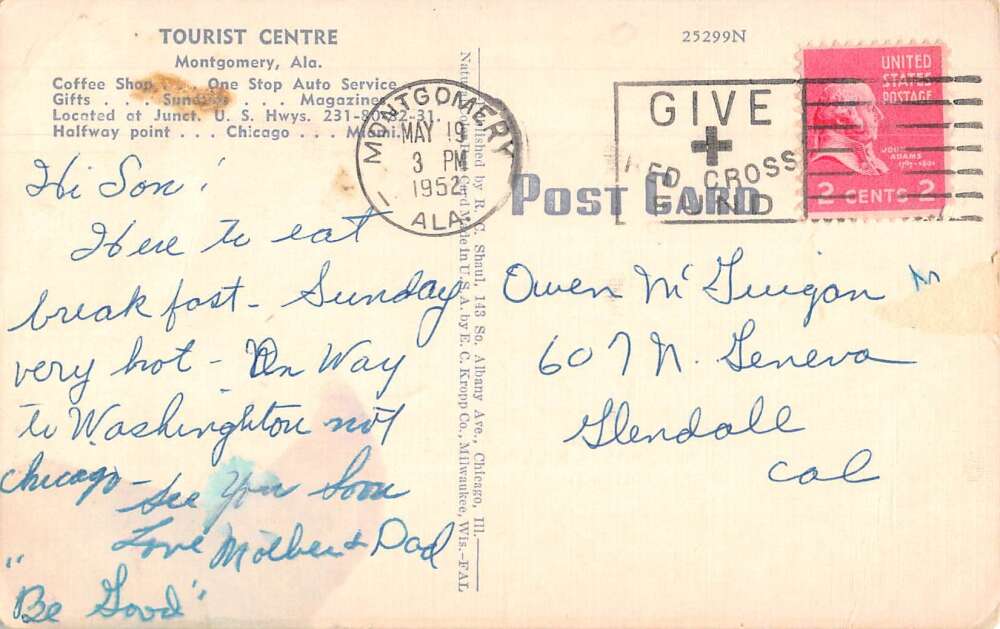 TOURIST CENTRE
Montgomery, Ala.
Coffee Shop . . . One Stop Auto Service
Gifts . . . Sundries . . . Magazines
Located at Junct. U. S. Hwys. 231-80-82-31.
Halfway point . . . Chicago . . . Miami.
Hi Son!
Here to eat
breakfast - Sunday
very hot - On Way
to Washinghton not
chicago -
See You Soon
Love Mother & Dad
"Be Good"
Published by R. C. Shaul, 143 So. Albany Ave., Chicago, Ill.
Card Made in U. S. A. by E. C. Kropp Co., Milwaukee, Wis.-FAL
MONTGOMERY
MAY 19
3 PM
1952
ALA.
GIVE
RED CROSS
FUND
25299N
POST CARD
UNITED
STATES
POSTAGE
JOHN
ADAMS
1797-1801
2 CENTS 2
Owen McGuigan
607 N. Geneva
Glendale
Cal